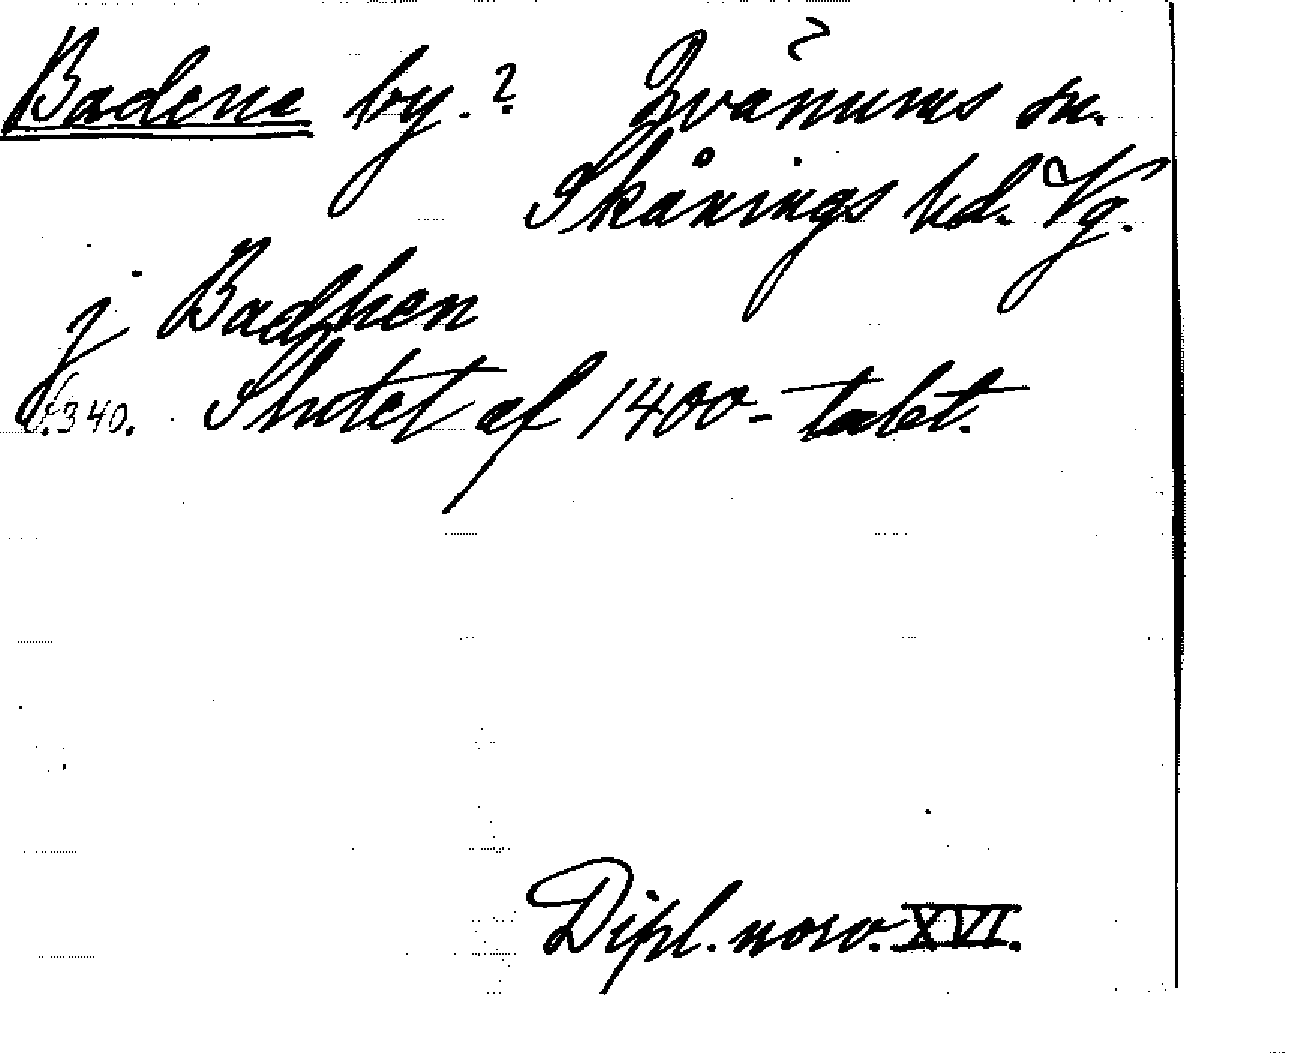 Badene by.? Qvänums sn.
Skånings hd. Vg.
j Badhen
s. 340. Slutet af 1400-talet.
Dipl. norv. XVI.